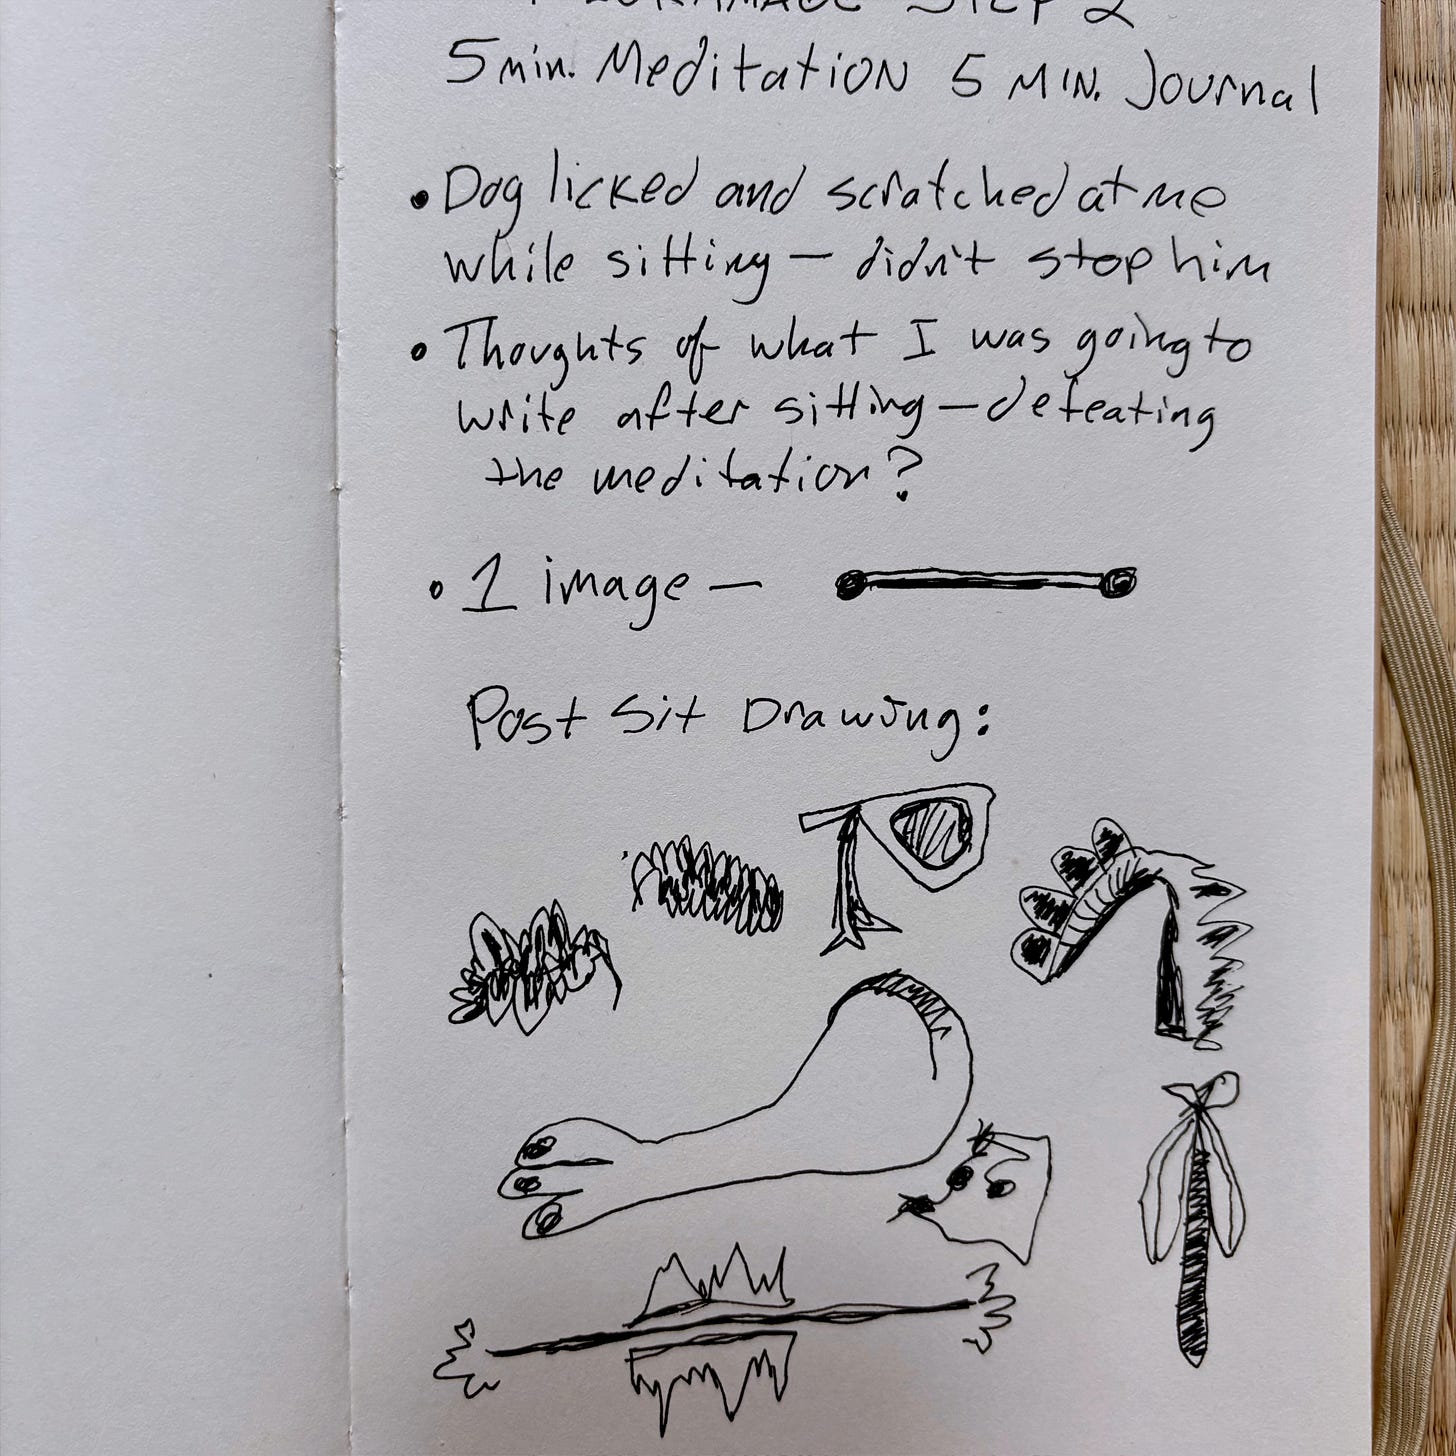 STEP 2
5 min. Meditation 5 MIN. Journal
• Dog licked and scratched at me
while sitting — didn't stop him
• Thoughts of what I was going to
write after sitting — defeating
the meditation?
• 1 image —
Post Sit Drawing: